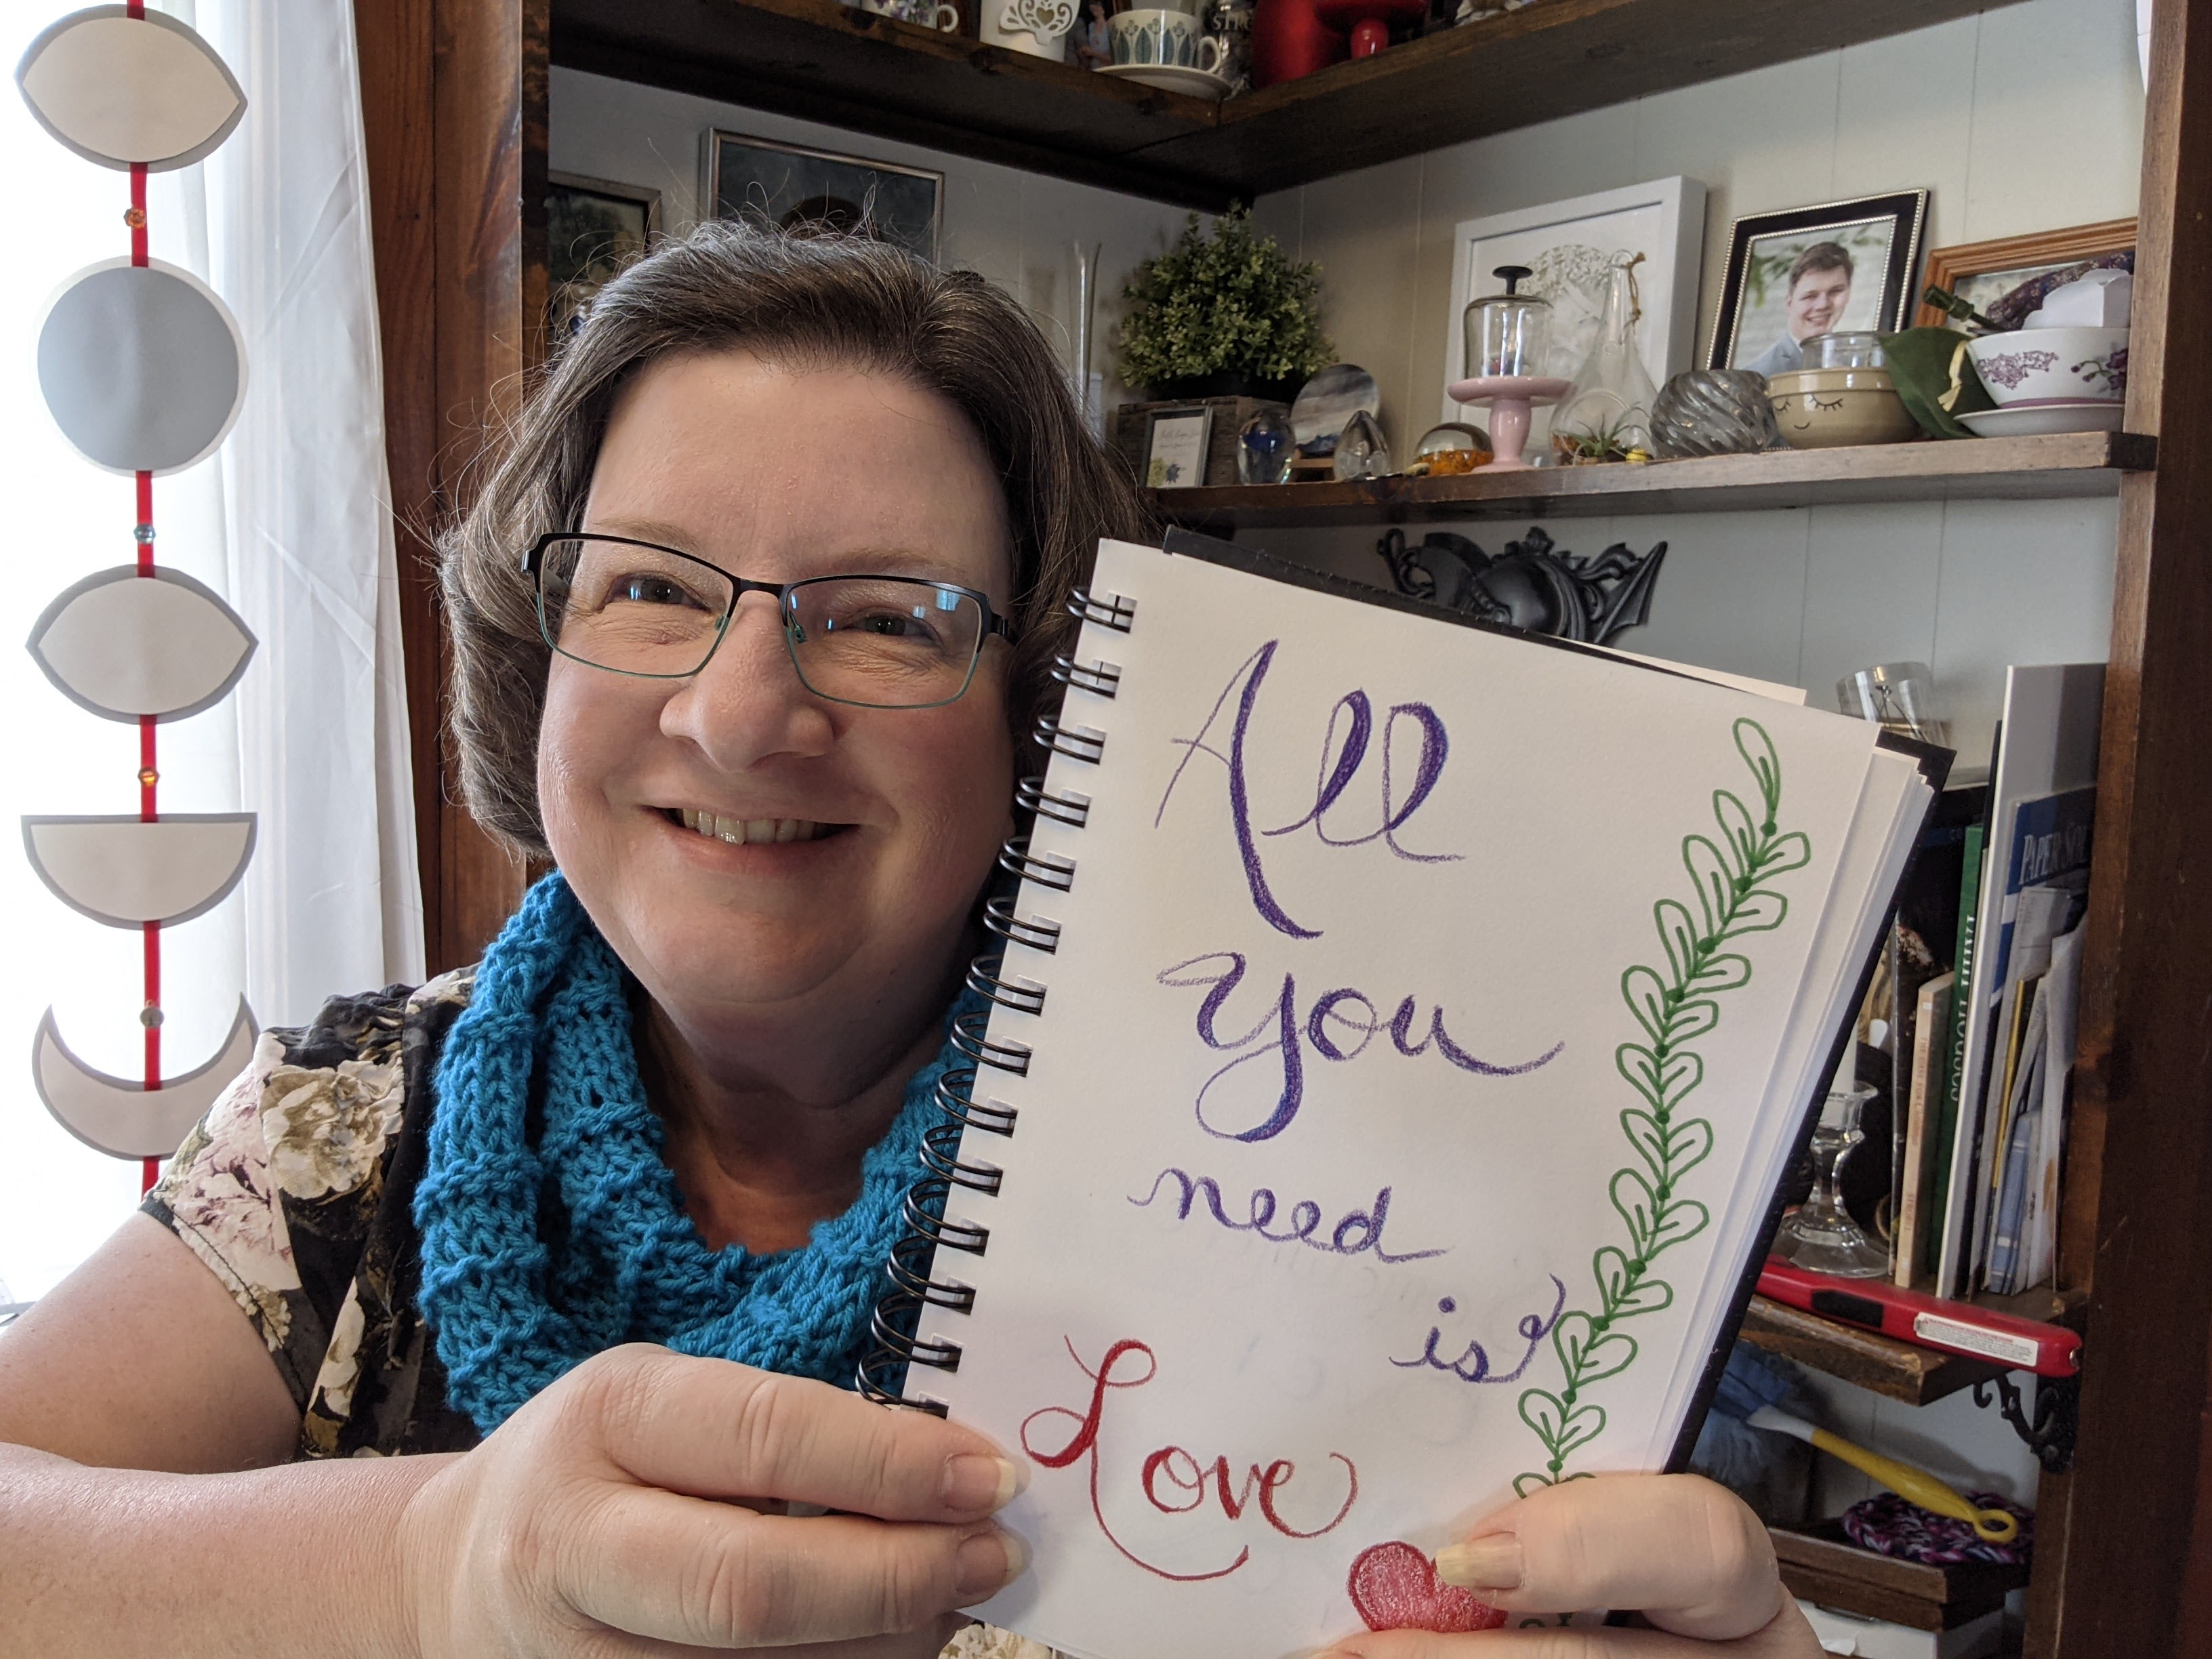 All
You
need
is
Love